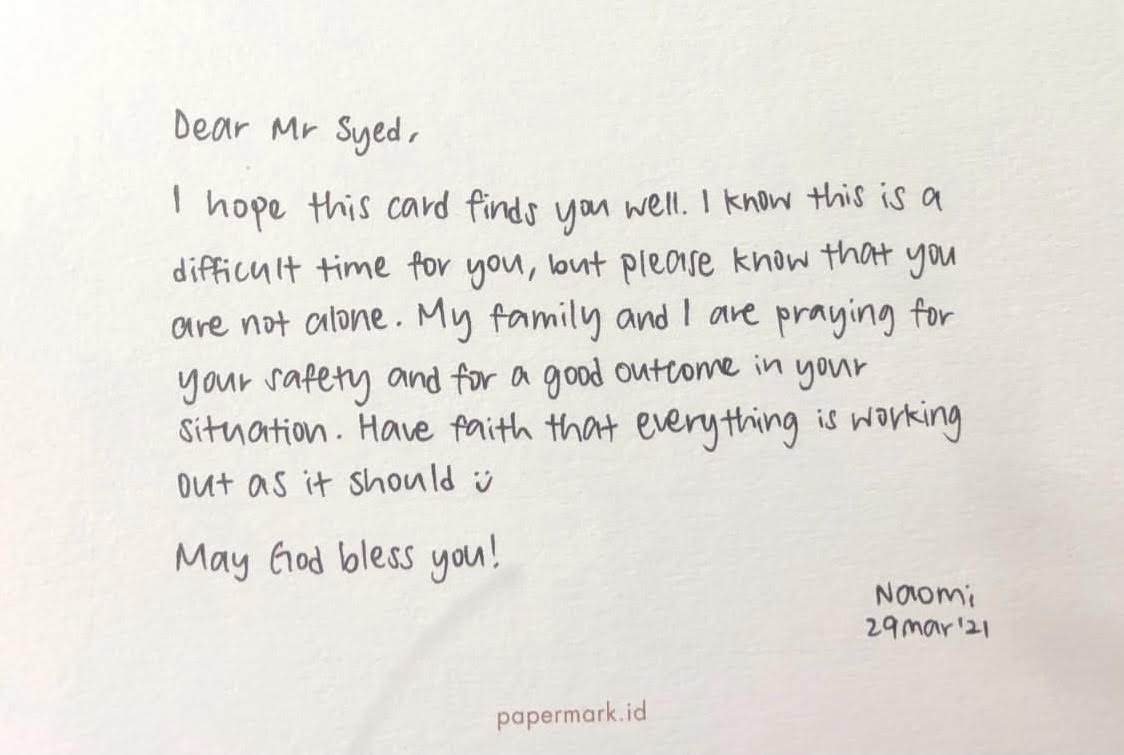 Dear Mr Syed,
I hope this card finds you well. I know this is a
difficult time for you, but please know that you
are not alone. My family and I are praying for
your safety and for a good outcome in your
situation. Have faith that everything is working
out as it should :)
May God bless you!
Naomi
29 mar '21
papermark.id